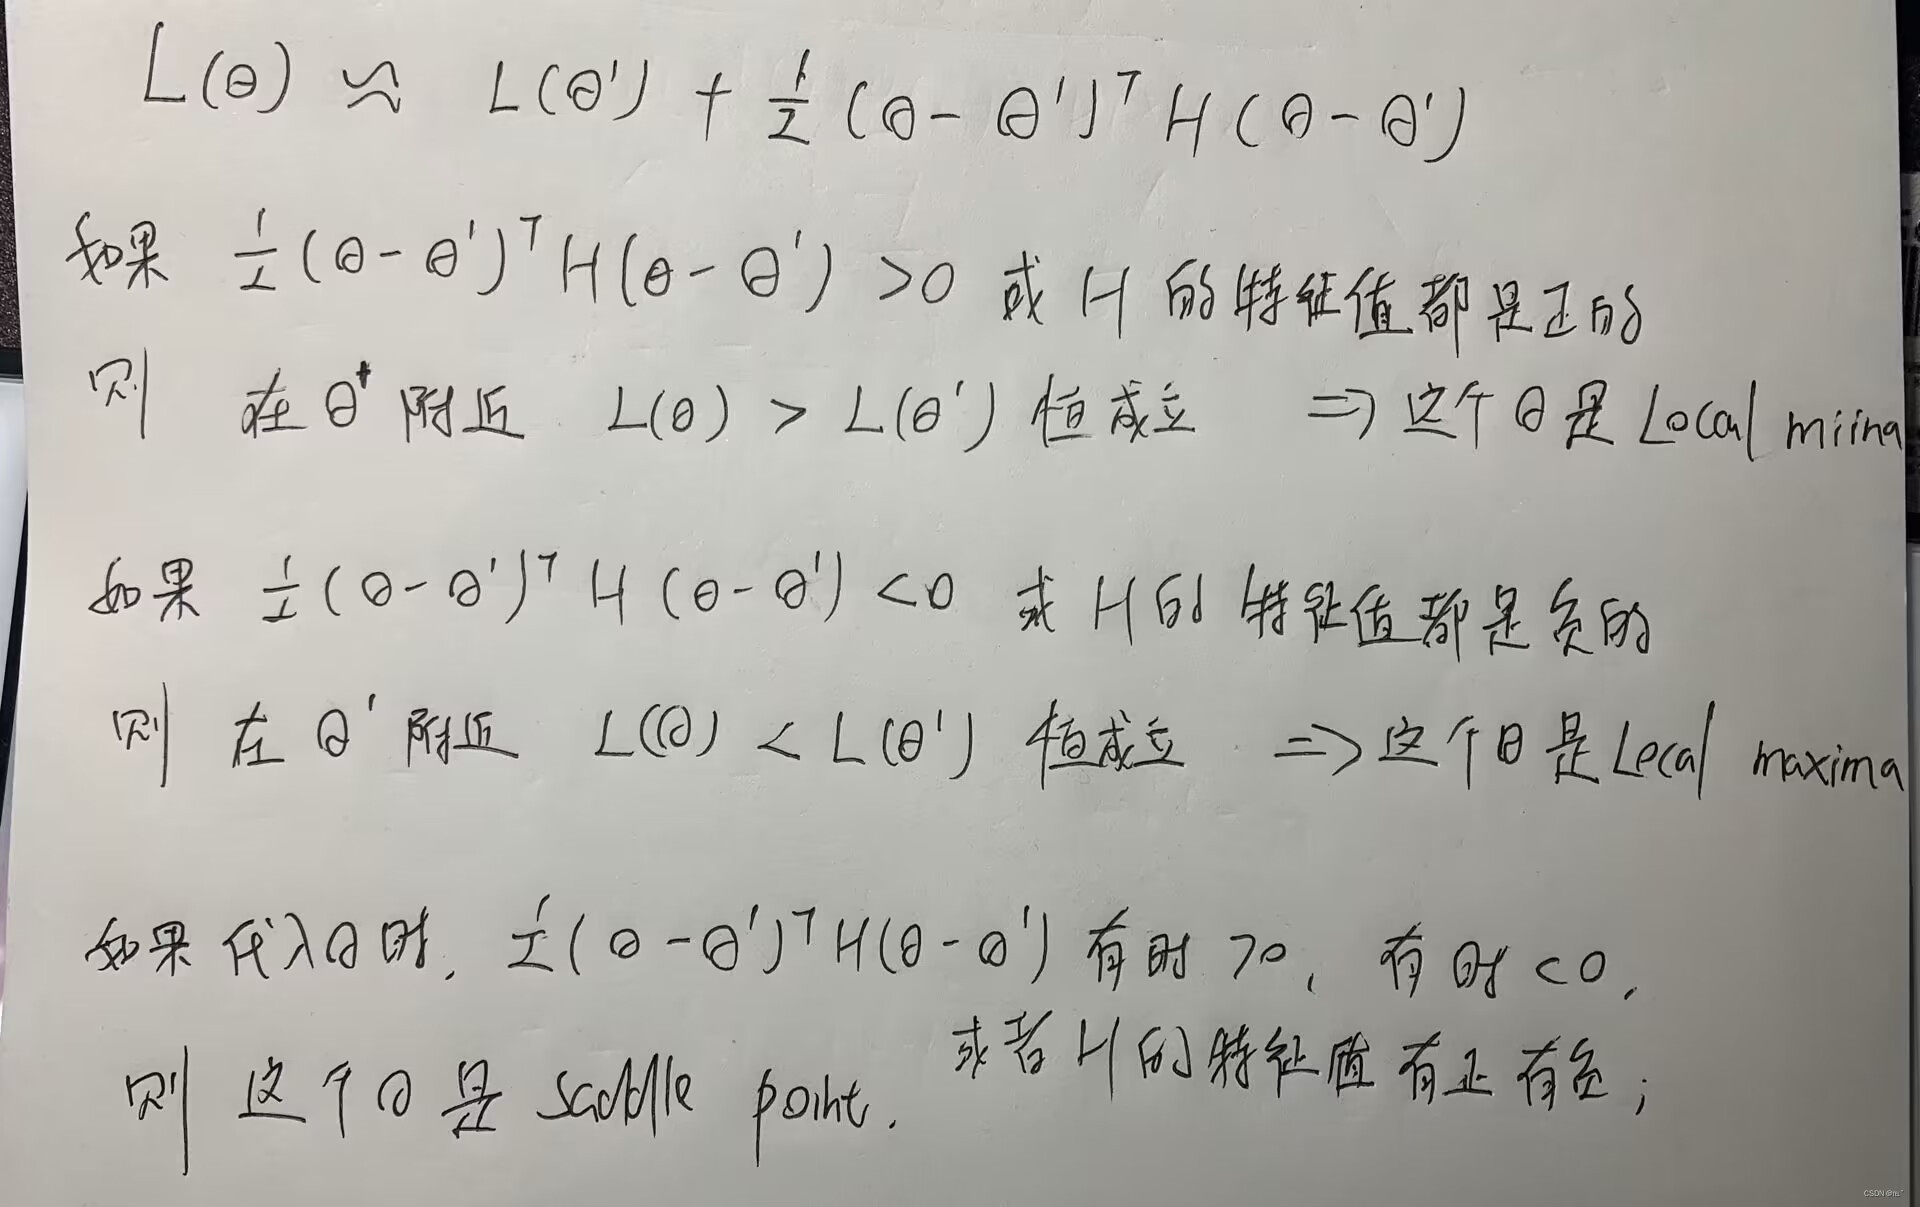 L(θ) ≈ L(θ') + 1/2 (θ - θ')ᵀ H (θ - θ')
如果 1/2 (θ - θ')ᵀ H (θ - θ') >0 或 H 的特征值都是正的
则 在 θ' 附近 L(θ) > L(θ') 恒成立 => 这个 θ 是 Local miina
如果 1/2 (θ - θ')ᵀ H (θ - θ') <0 或 H 的特征值都是负的
则 在 θ' 附近 L(θ) < L(θ') 恒成立 => 这个 θ 是 Local maxima
如果代入θ时, 1/2 (θ - θ')ᵀ H (θ - θ') 有时 >0, 有时 <0,
或者 H 的特征值有正有负;
则 这个 θ 是 saddle point.